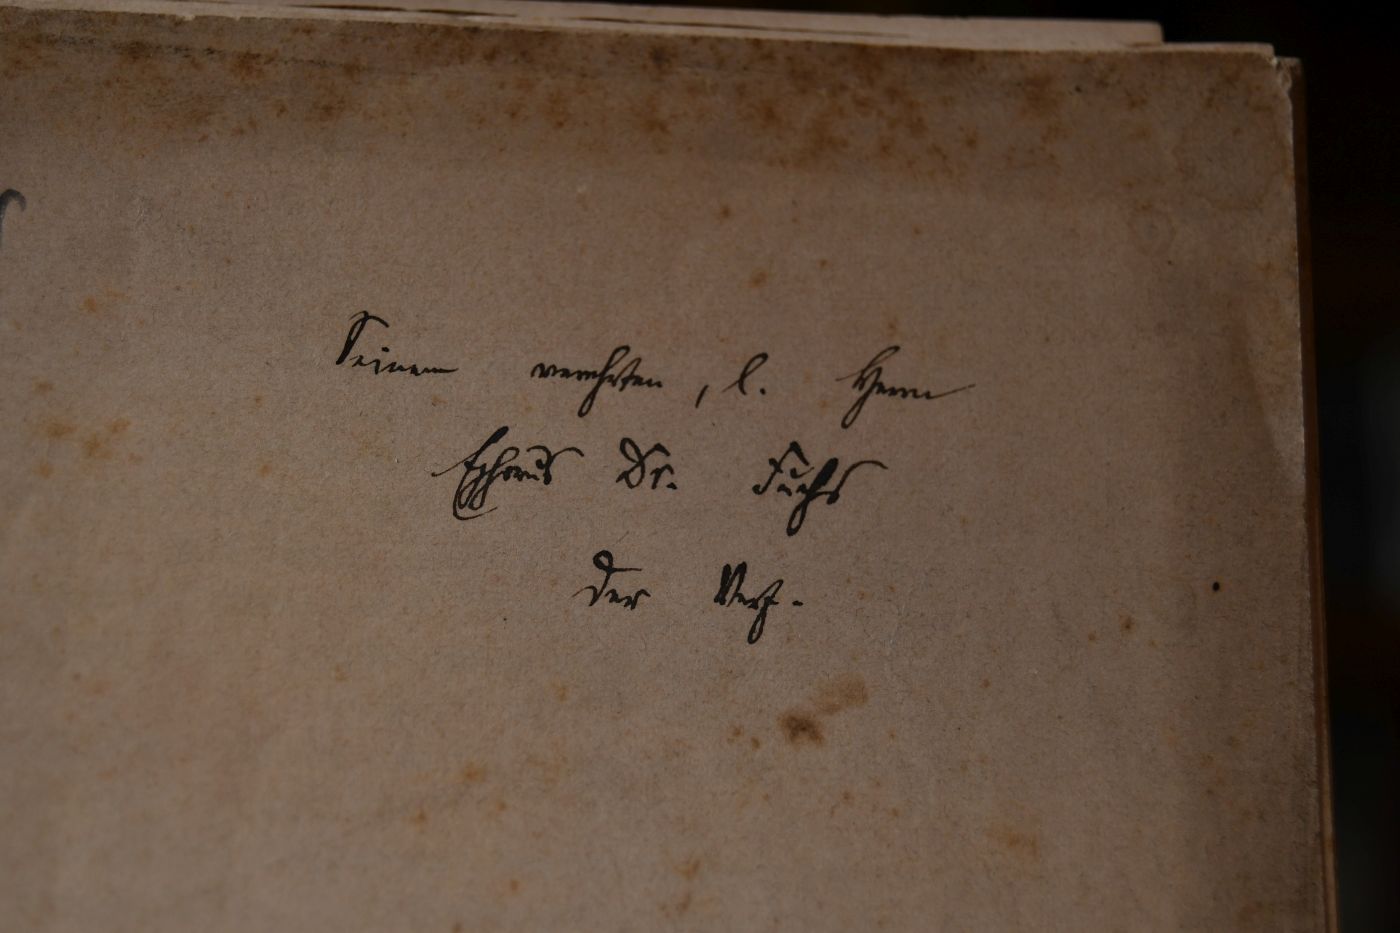 Seinem verehrten, l. Herrn
Ephorus Dr. Fuchs
der Verf.